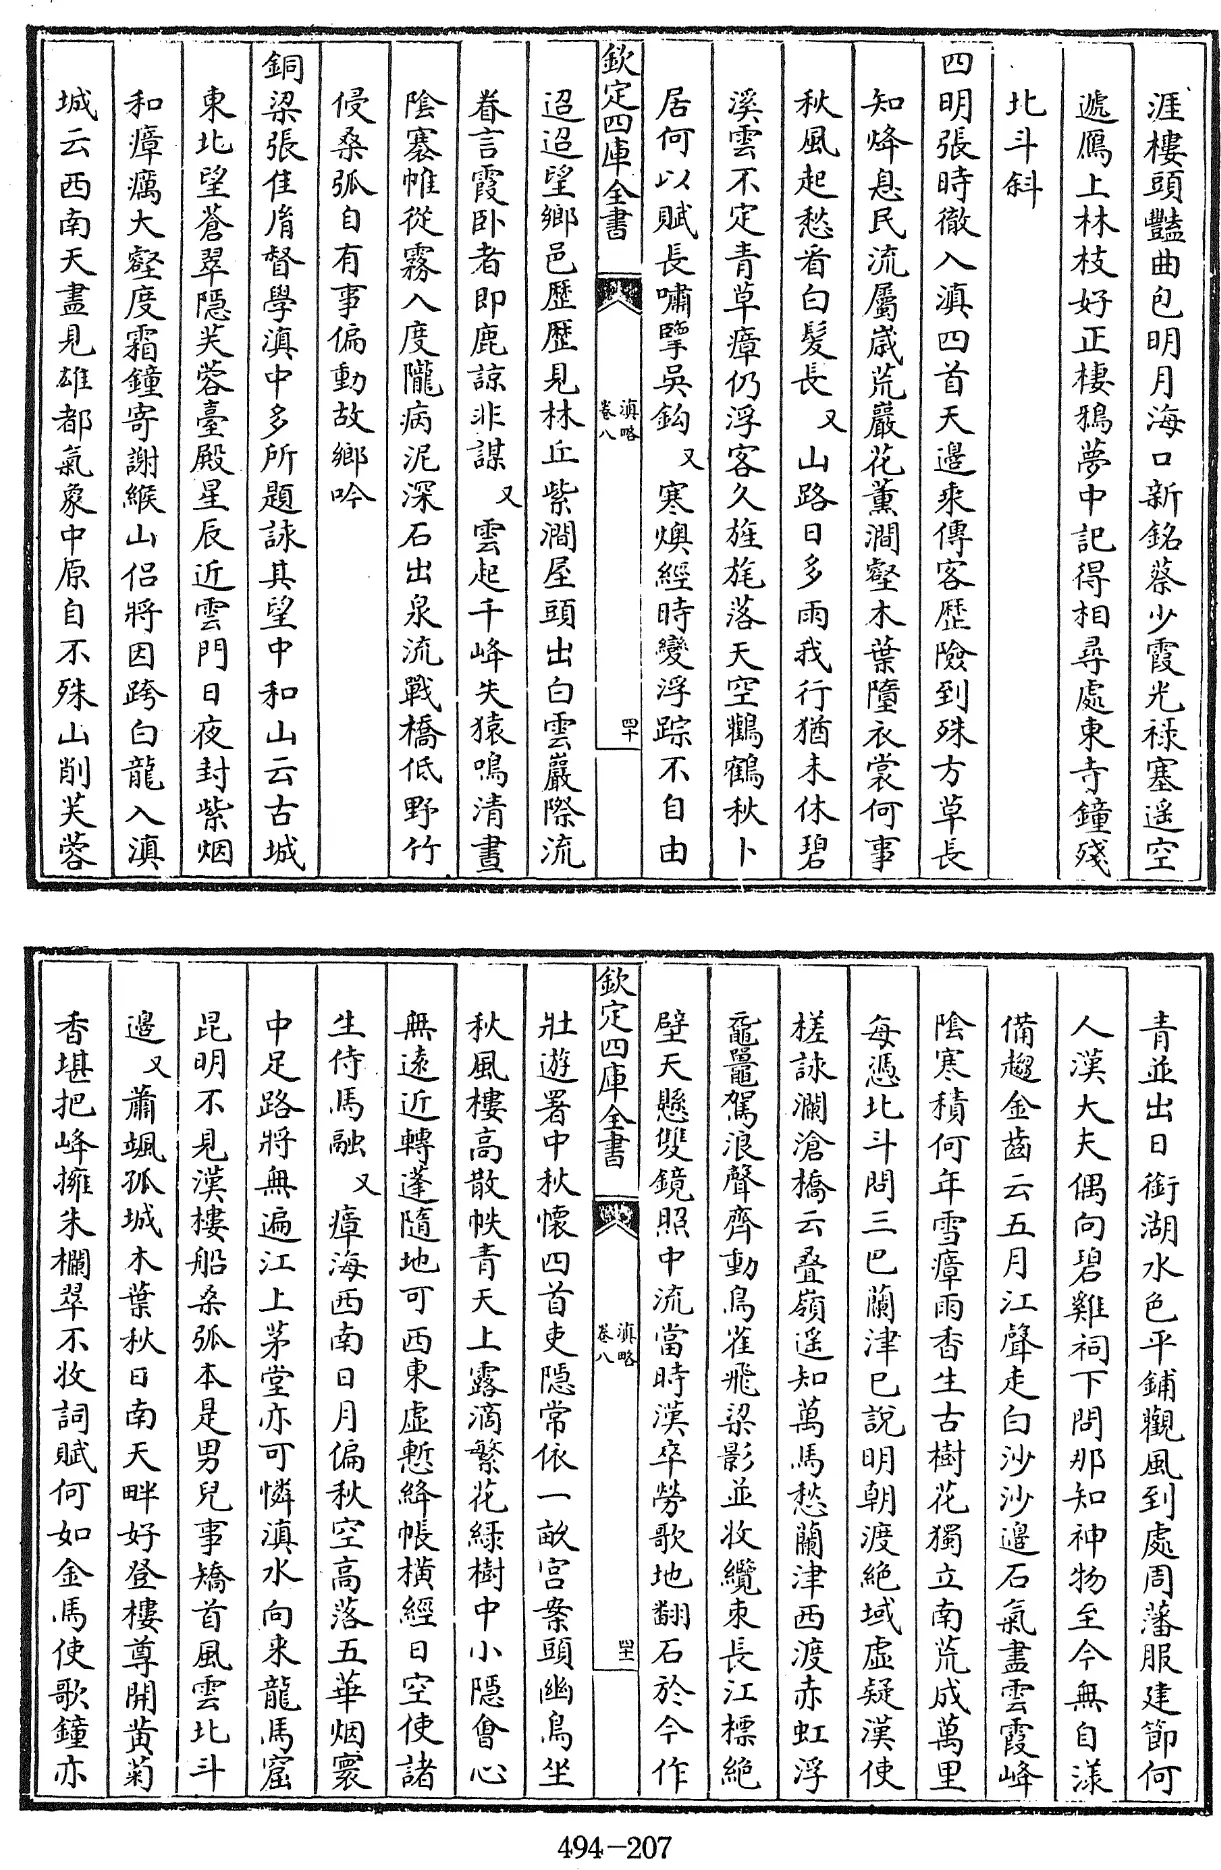 涯樓頭豔曲包明月海口新銘蔡少霞光祿塞遥空
遞鴈上林枝好正棲鵶夢中記得相尋處東寺鐘殘
北斗斜
四明張時徹入滇四首天邊來傳客歴險到殊方草長
知烽息民流屬歳荒巖花薰澗壑木葉墮衣裳何事
秋風起愁看白髮長 又 山路日多雨我行猶未休碧
溪雲不定青草瘴仍浮客久旌旄落天空鸛鶴秋卜
居何以賦長嘯擥吳鈎 又 寒燠經時變浮踪不自由
欽定四庫全書
滇略
卷八
四十
迢迢望鄉邑歷歷見林丘紫澗屋頭出白雲巖際流
眷言霞卧者即鹿諒非謀 又 雲起千峰失猿鳴清晝
陰褰帷從霧入度隴病泥深石出泉流戰橋低野竹
侵桑弧自有事偏動故鄉吟
銅梁張佳胤督學滇中多所題詠其望中和山云古城
東北望蒼翠隱芙蓉臺殿星辰近雲門日夜封紫烟
和瘴癘大壑度霜鐘寄謝緱山侣將因跨白龍入滇
城云西南天盡見雄都氣象中原自不殊山削芙蓉
青並出日銜湖水色平鋪觀風到處周藩服建節何
人漢大夫偶向碧雞祠下問那知神物至今無自漾
備趨金齒云五月江聲走白沙沙邊石氣盡雲霞峰
陰寒積何年雪瘴雨香生古樹花獨立南荒成萬里
每憑北斗問三巴蘭津已說明朝渡絶域虛疑漢使
槎詠瀾滄橋云疊嶺遥知萬馬愁蘭津西渡赤虹浮
黿鼉駕浪聲齊動鳥雀飛梁影並收纜束長江標絶
壁天懸雙鏡照中流當時漢卒勞歌地翻石於今作
欽定四庫全書
滇略
卷八
四十一
壯遊署中秋懷四首吏隱常依一畝宫案頭幽鳥坐
秋風樓高散帙青天上露滴繁花緑樹中小隱會心
無遠近轉蓬隨地可西東虛慙絳帳橫經日空使諸
生侍馬融 又 瘴海西南日月偏秋空高落五華烟寰
中足路將無遍江上茅堂亦可憐滇水向來龍馬窟
昆明不見漢樓船桑弧本是男兒事矯首風雲北斗
邊 又 蕭颯孤城木葉秋日南天畔好登樓尊開黄菊
香堪把峰擁朱欄翠不收詞賦何如金馬使歌鐘亦
494-207